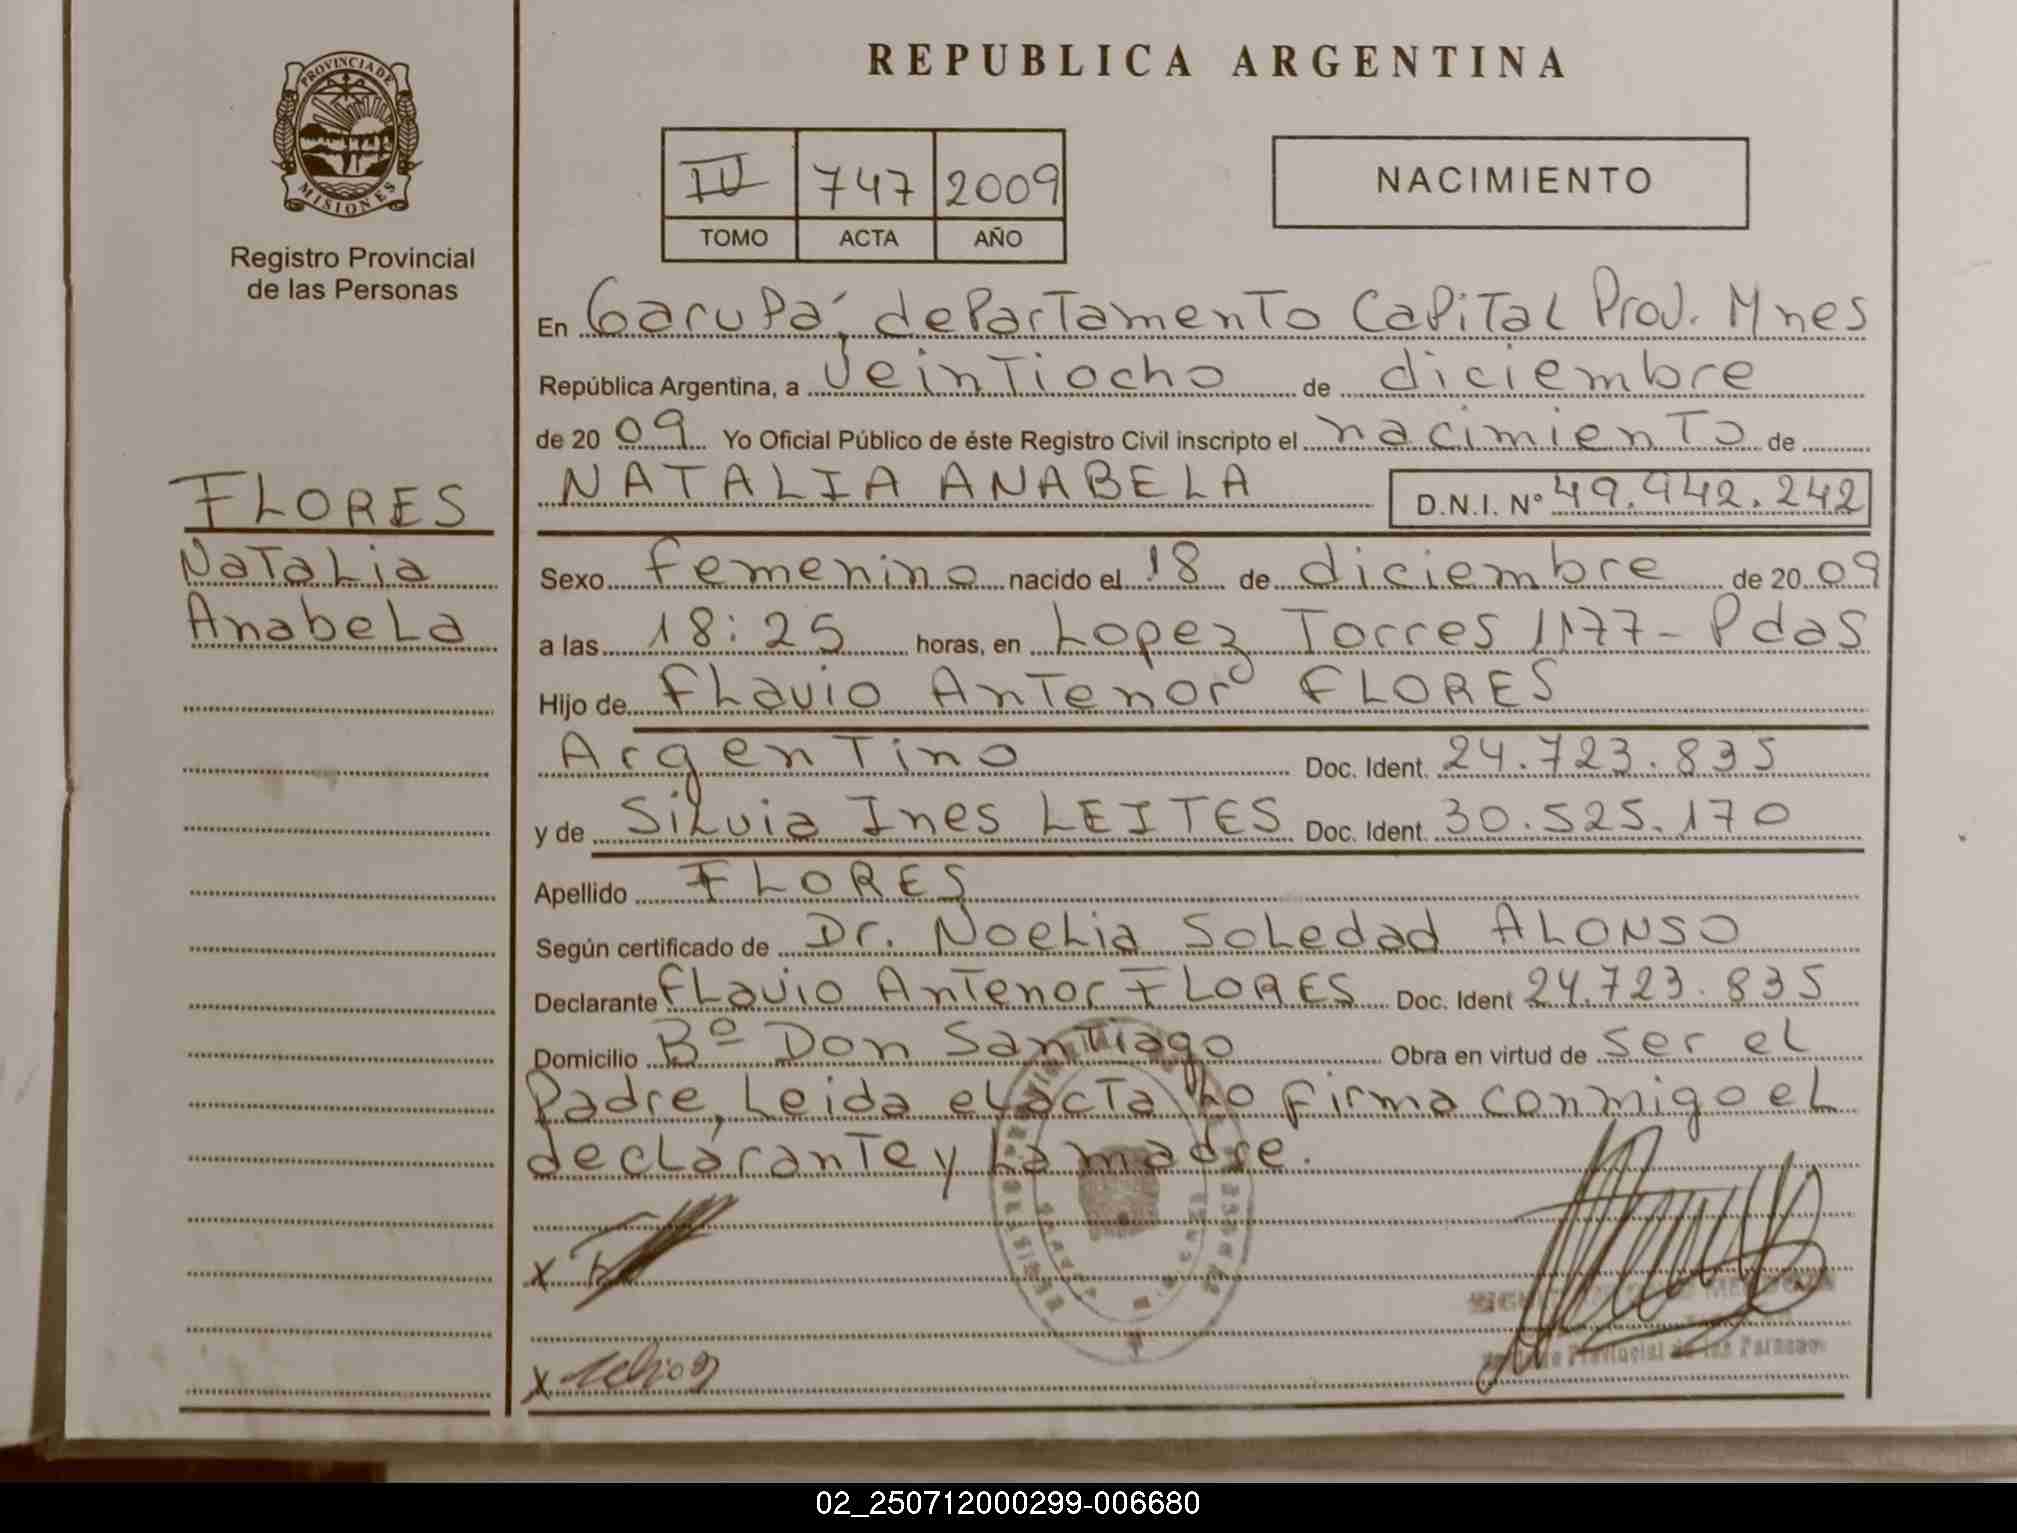 PROVINCIA DE
MISIONES
Registro Provincial
de las Personas
FLORES
Natalia
Anabela
REPUBLICA ARGENTINA
IV 747 2009
TOMO ACTA AÑO
NACIMIENTO
En Garupá, departamento Capital Prov. Mnes
República Argentina, a Veintiocho de diciembre
de 20 09 Yo Oficial Público de éste Registro Civil inscripto el nacimiento de
NATALIA ANABELA D.N.I. Nº 49.942.242
Sexo femenino nacido el 18 de diciembre de 20 09
a las 18:25 horas, en Lopez Torres 1177 - Pdas
Hijo de Flavio Antenor FLORES
Argentino Doc. Ident. 24.723.835
y de Silvia Ines LEITES Doc. Ident. 30.525.170
Apellido FLORES
Según certificado de Dr. Noelia Soledad ALONSO
Declarante Flavio Antenor FLORES Doc. Ident 24.723.835
Domicilio Bº Don Santiago Obra en virtud de ser el
Padre, Leida el acta lo firma conmigo el
declarante y la madre.
X
X
Provincial de las Personas
02_250712000299-006680